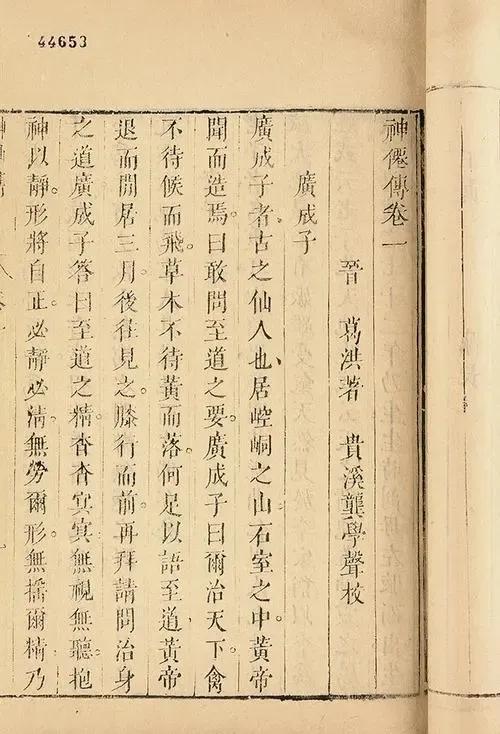 44653
神僊傳卷一
晉 葛洪著 貴溪龔學聲校
廣成子
廣成子者古之仙人也居崆峒之山石室之中。黃帝
聞而造焉。曰敢問至道之要。廣成子曰爾治天下。禽
不待候而飛。草木不待黃而落。何足以語至道黃帝
退而閒居三月。後往見之。膝行而前再拜請問治身
之道廣成子答曰至道之精。杳杳冥冥無視無聽。抱
神以靜。形將自正。必靜必淸。無勞爾形。無搖爾精乃